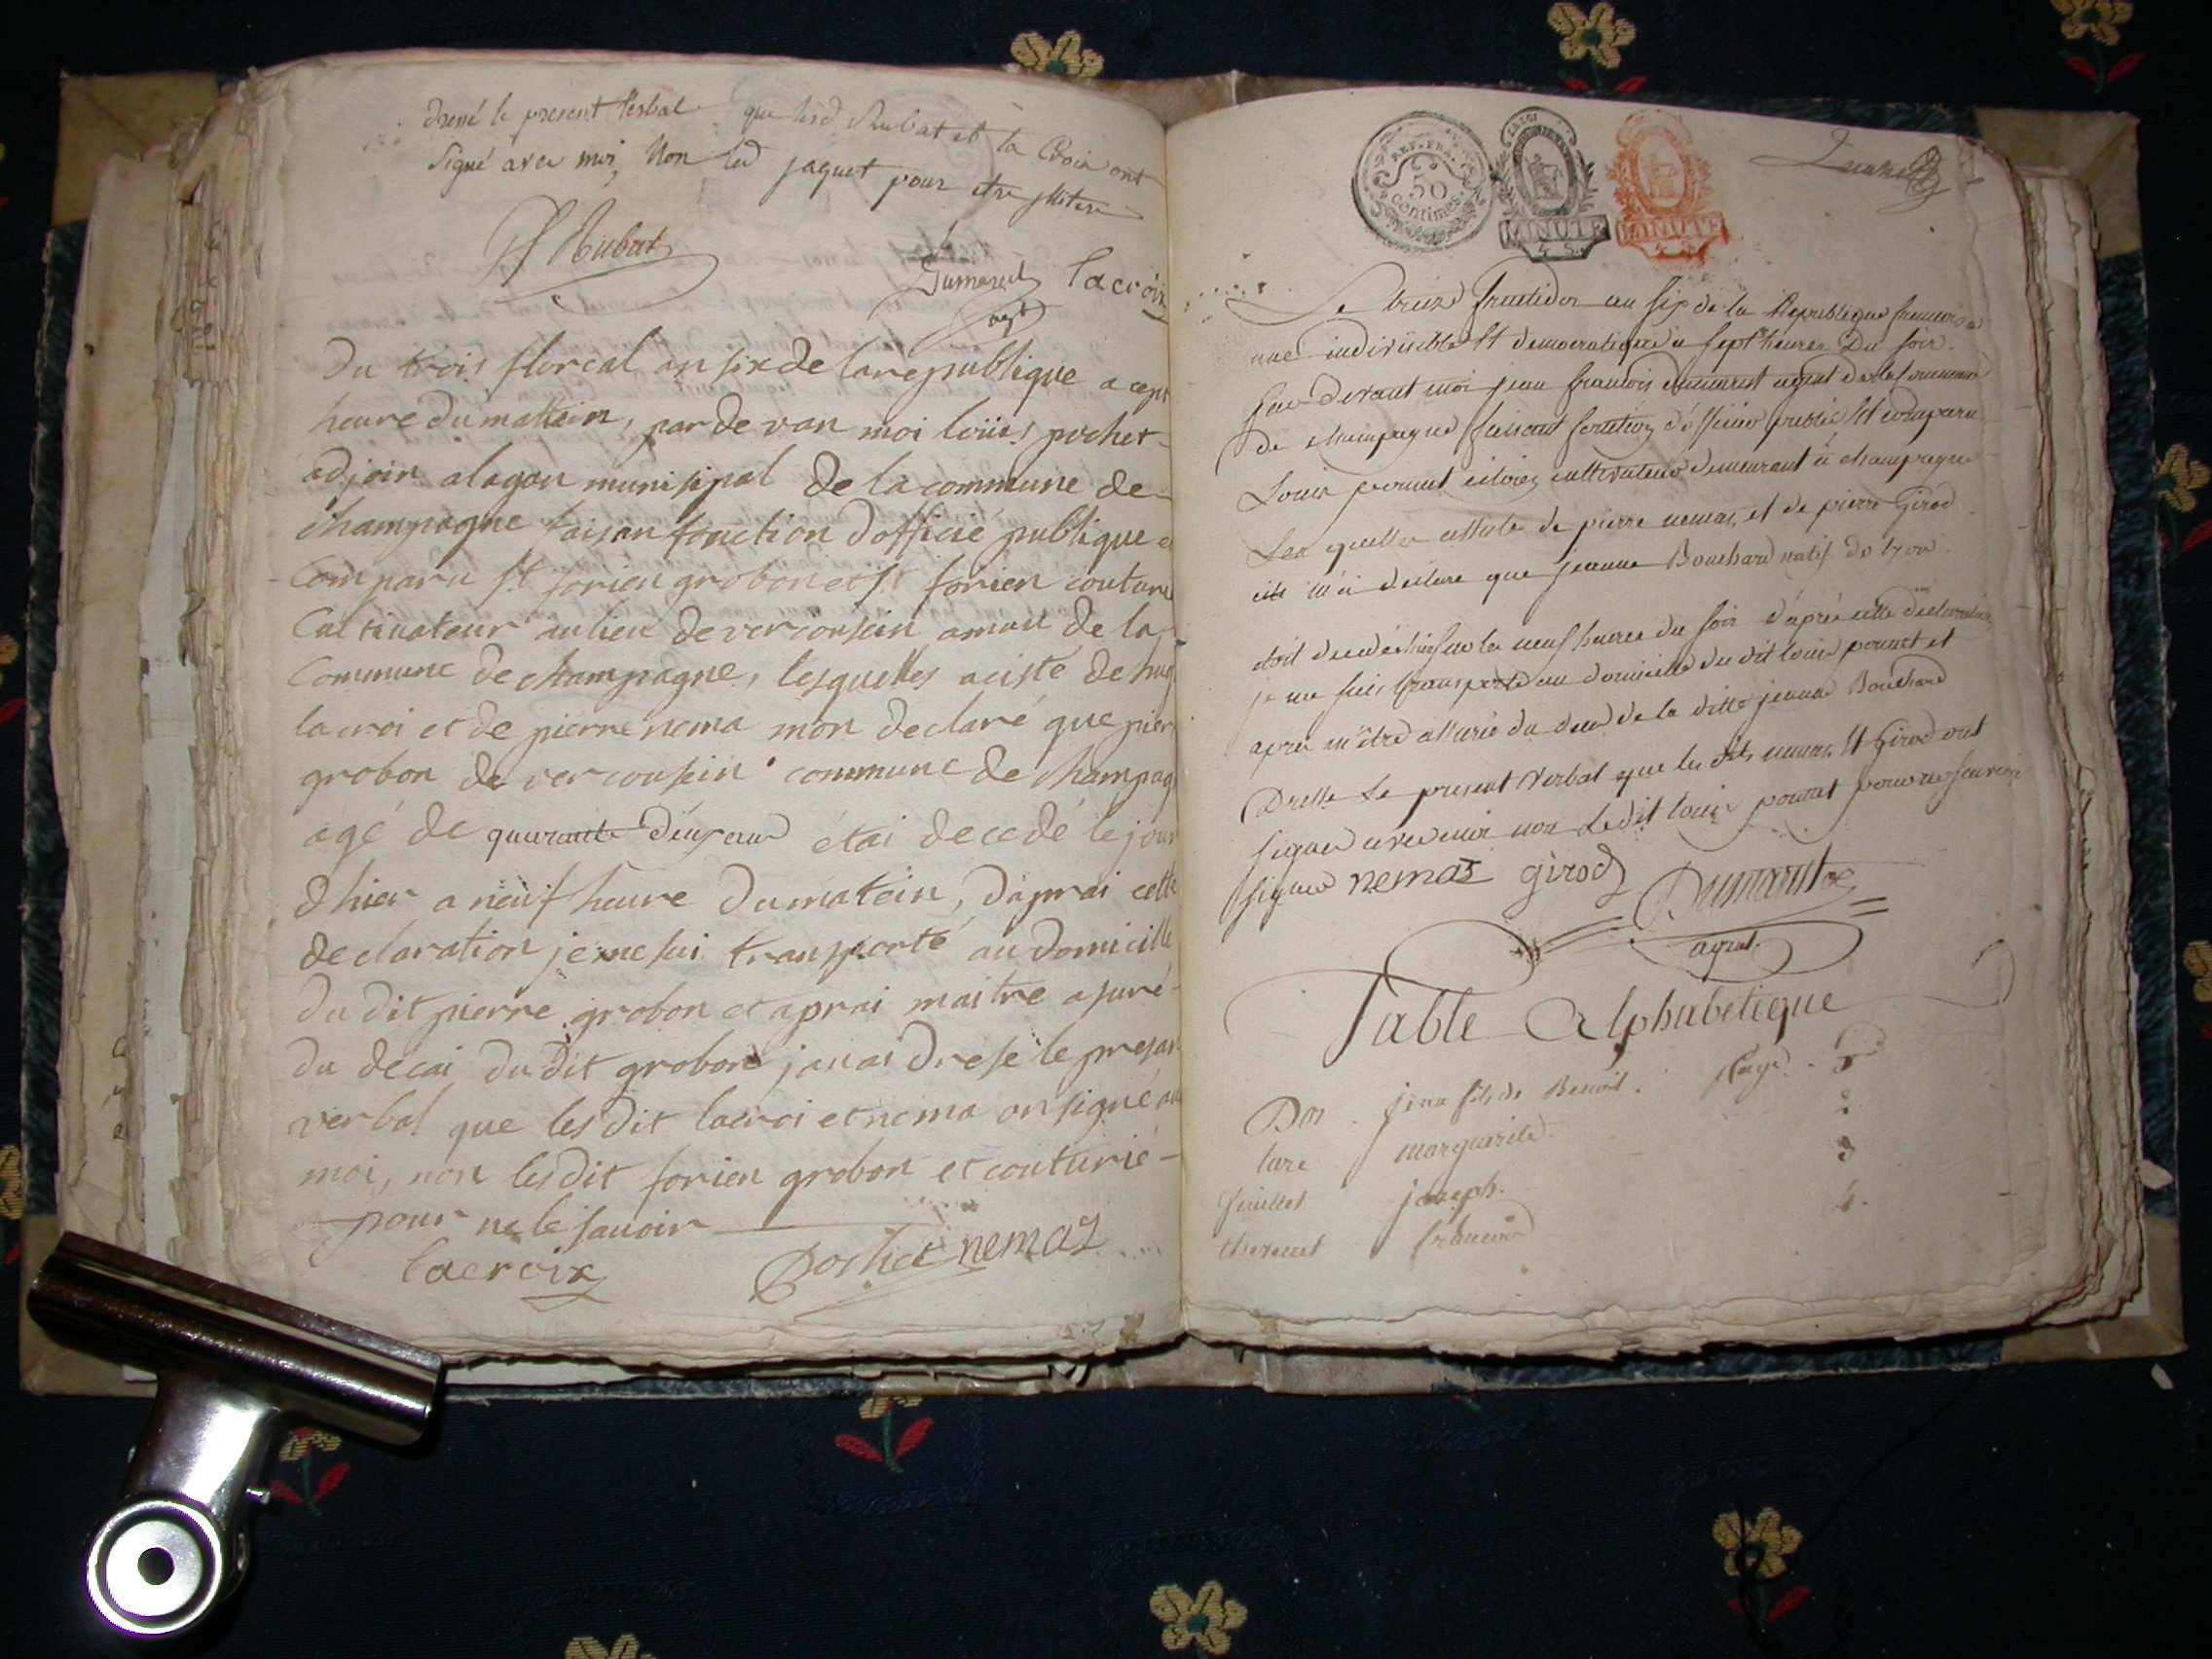 dressé le present verbal que lesd Rubat et la Croix ont
signé avec moi, Non led jaquet pour etre illitere
Rubat
Dumarest lacroix
agt
Du trois floreal an six de la republique a cept
heure du mattein, par de van moi loüis pochet
adjoin a lagan munisipal de la commune de
champagne faisan fonction dofficié publique e
Comparu st forien grobon et st forien couturie
Cultivateur au lieu de vercousin amau de la
Commune de champagne, lesquelles aciste de hug
lacroi et de pierre nema mon declaré que pier
grobon de vercousein commune de champag
agé de quarante deux ans étai decedé le jour
dhier a neuf heure du matein, daprai cette
declaration je me sui transporté au domicille
du dit pierre grobon et aprai maitre asuré
du decai du dit grobon janai drese le presan
verbal que les dit lacroi et nema on signé av
moi, non les dit forien grobon et couturié
pour ne le savoir
lacroix Pochet nemaz
REP. FRA.
50
centimes
LA LOI
MINUTE
4 S.
MINUTE
4 S.
Le treize fructidor an six de la Republique francaise
une indivisible et democratique a sept heures Du soir
par devant moi jean francois dumarest agent de la commune
de champagne faisant fonction d'officier public et comparu
Louis pournet citoien cultivateur demeurant à champagne
Les quelles assisté de pierre nemaz et de pierre Girod
ils m'a déclaré que jeanne Bouchard natif de lyon
etoit decedé hier sur les neuf heures du soir d'après cette declaration
je me suis transporté au domicile du dit louis pournet et
apres m'être assuré du deces de la ditte jeanne Bouchard
Dressé Le present verbal que les dits nemaz et Girod ont
signé avec moi non Ledit louis pournet pour ne scavoir
signer nemaz girod Dumarest
agent
Table Alphabetique
jean fils de Benoit. Page. 1
marguerite 2
joseph. 3
francois 4.